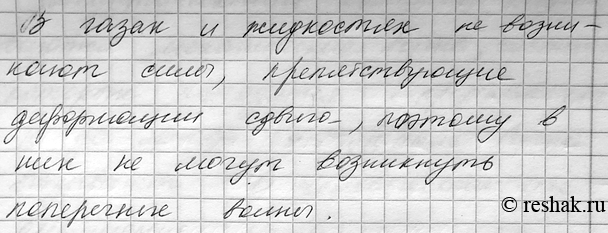 В газах и жидкостях не возни-
кают силы, препятствующие
деформации сдвига, поэтому в
них не могут возникнуть
поперечные волны.
© reshak.ru